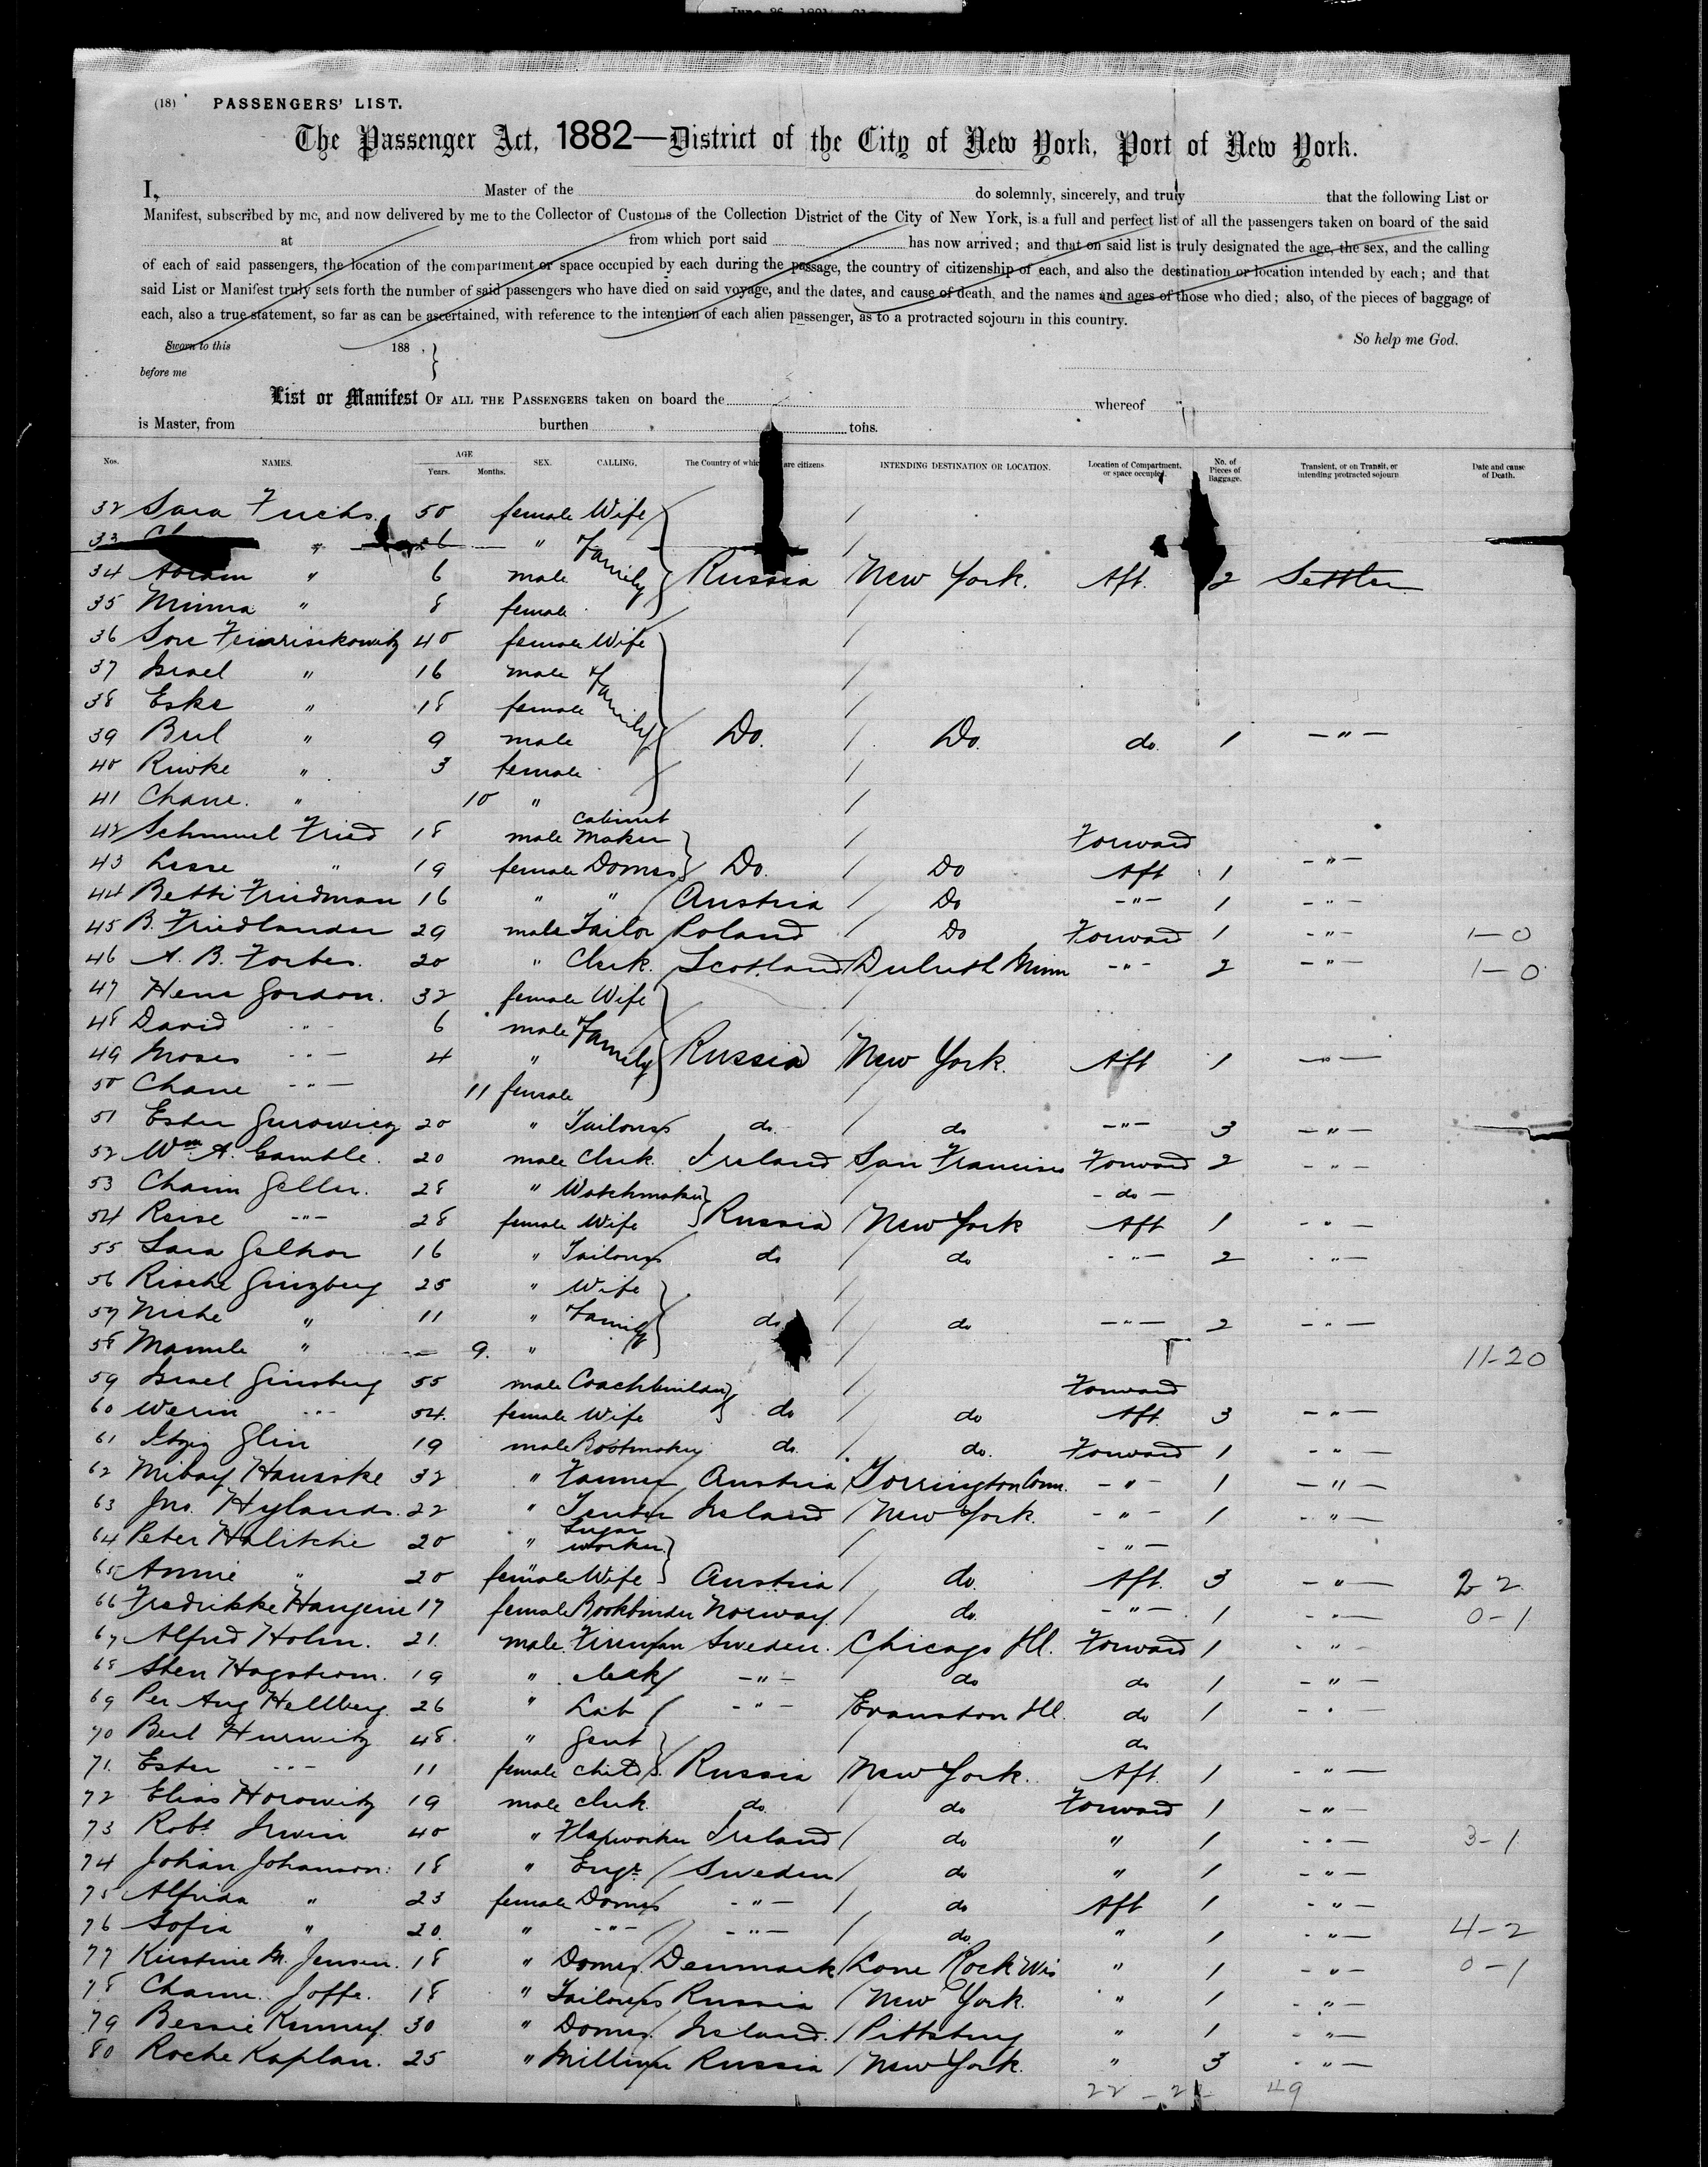 (18) PASSENGERS' LIST.
The Passenger Act, 1882—District of the City of New York, Port of New York.
I, Master of the do solemnly, sincerely, and truly that the following List or
Manifest, subscribed by me, and now delivered by me to the Collector of Customs of the Collection District of the City of New York, is a full and perfect list of all the passengers taken on board of the said
at from which port said has now arrived; and that on said list is truly designated the age, the sex, and the calling
of each of said passengers, the location of the compartment or space occupied by each during the passage, the country of citizenship of each, and also the destination or location intended by each; and that
said List or Manifest truly sets forth the number of said passengers who have died on said voyage, and the dates, and cause of death, and the names and ages of those who died; also, of the pieces of baggage of
each, also a true statement, so far as can be ascertained, with reference to the intention of each alien passenger, as to a protracted sojourn in this country.
So help me God.
Sworn to this 188 .
before me
List or Manifest OF ALL THE PASSENGERS taken on board the whereof
is Master, from burthen tons.
Nos. NAMES. AGE Years. Months. SEX. CALLING. The Country of which are citizens. INTENDING DESTINATION OR LOCATION. Location of Compartment, or space occupied. No. of Pieces of Baggage. Transient, or on Transit, or intending protracted sojourn Date and cause of Death.
32 Sara Fuchs 50 female Wife
33 " " Family
34 Abram " 6 male Russia New York. Aft. 2 Settler
35 Minna " 8 female
36 Sore 40 female Wife
37 Israel " 16 male Family
38 Eske " 18 female
39 Beil " 9 male Do. Do. do. 1 — " —
40 Riwke " 3 female
41 Chane. " 10 "
42 Schmuel Fried 18 male Cabinet Maker Forward
43 Lesse " 19 female Domes Do. Do Aft 1 — " —
44 Betti Friedman 16 " " Austria Do — " — 1 — " —
45 B. Friedlander 29 male Tailor Poland Do Forward 1 — " — 1-0
46 A. B. Forbes. 20 " Clerk. Scotland Duluth Minn — " — 2 — " — 1-0
47 Hene Gordon. 32 female Wife
48 David — " — 6 male Family
49 Moses — " — 4 " Russia New York. Aft 1 — " —
50 Chane — " — 11 female
51 Ester Gurowicz 20 " Tailoress do. do — " — 3 — " —
52 Wm. A. Gamble. 20 male Clerk. Ireland San Francisco Forward 2 — " —
53 Chaim Geller. 28 " Watchmaker — do —
54 Reise — " — 28 female Wife Russia New York Aft 1 — " —
55 Sara 16 " Tailoress do do — " — 2 — " —
56 Rische Ginzberg 25 " Wife
57 Nishe " 11 " Family do. do — " — 2 — " —
58 " 9. " 11-20
59 Israel Ginsberg 55 male Coachbuilder Forward
60 — " — 54. female Wife do do Aft. 3 — " —
61 Itzig Glin 19 male Bootmaker do. do. Forward 1 — " —
62 32 " Farmer Austria Torrington Conn. — " — 1 — " —
63 Jno. Hylands. 22 " Ireland New York. — " — 1 — " —
64 Peter Halitche 20 " Sugar worker. — " —
65 Annie " 20 female Wife Austria do. Aft. 3 — " — 2 2
66 Fredrikke 17 female Bookbinder Norway. do. — " — 1 — " — 0-1
67 Alfred Holm. 21. male Fireman Sweden. Chicago Ill. Forward 1 — " —
68 Sten Hagstrom. 19 " — " — do do 1 — " —
69 Per Aug Hellberg. 26 " Lab — " — Evanston Ill. do 1 — " —
70 Beil Hurwitz 48. " Gent do
71. Ester — " — 11 female child Russia New York. Aft. 1 — " —
72 Elias Horowitz 19 male clerk. do. do Forward 1 — " —
73 Robt. Irwin 40 " Flaxworker Ireland do " 1 — " — 3-1
74 Johan Johanson. 18 " Engr. Sweden do " 1 — " —
75 Alfrida " 23 female Domes — " — do Aft 1 — " —
76 Sofia " 20. " — " — — " — do. " 1 — " — 4-2
77 Kirstine M. Jensen. 18 " Domes Denmark Lone Rock Wis " 1 — " — 0-1
78 Joffe. 18 " Tailoress Russia New York. " 1 — " —
79 Bessie 30 " Domes. Ireland. Pittsburg " 1 — " —
80 Roche Kaplan. 25 " Milliner Russia New York. " 3 — " —
49